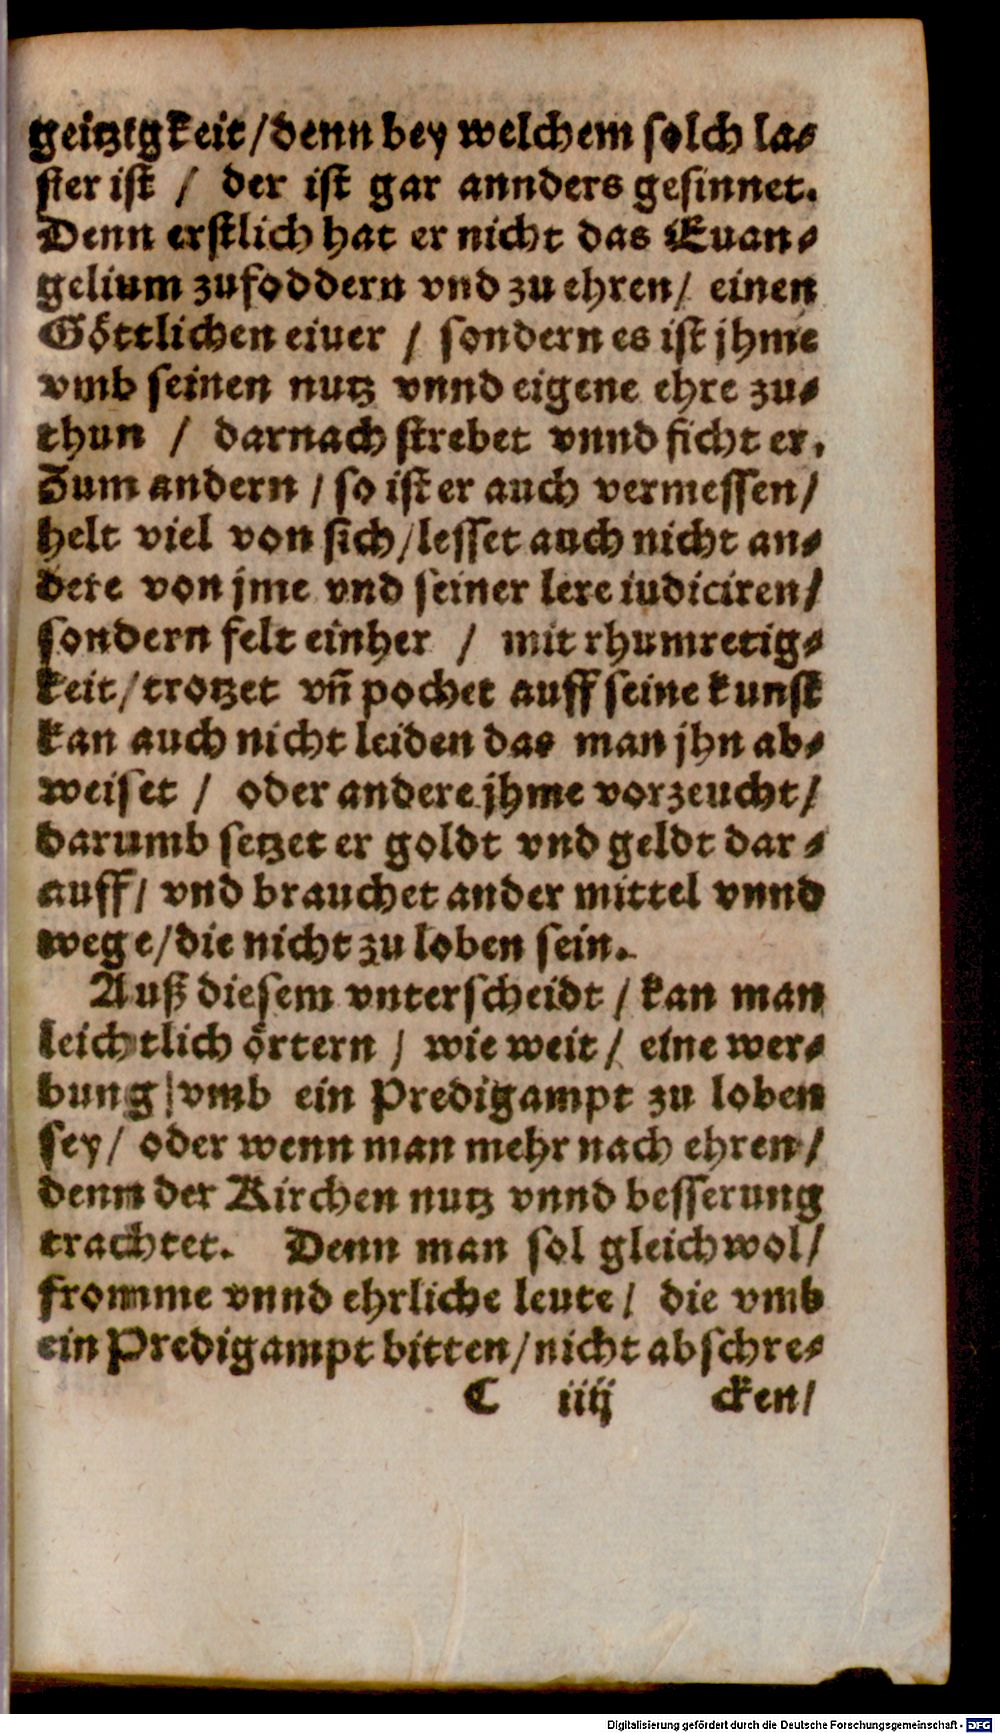 geitzigkeit/denn bey welchem solch la⸗
ster ist / der ist gar annders gesinnet.
Denn erstlich hat er nicht das Euan⸗
gelium zufoddern vnd zu ehren/ einen
Göttlichen eiuer / sondern es ist jhme
vmb seinen nutz vnnd eigene ehre zu⸗
thun / darnach strebet vnnd ficht er.
Zum andern / so ist er auch vermessen/
helt viel von sich/lesset auch nicht an⸗
dere von jme vnd seiner lere iudiciren/
sondern felt einher / mit rhumretig⸗
keit/trotzet vñ pochet auff seine kunst
kan auch nicht leiden das man jhn ab⸗
weiset / oder andere jhme vorzeucht/
darumb setzet er goldt vnd geldt dar⸗
auff/ vnd brauchet ander mittel vnnd
wege/die nicht zu loben sein.
Auß diesem vnterscheidt / kan man
leichtlich örtern / wie weit / eine wer⸗
bung/vmb ein Predigampt zu loben
sey/ oder wenn man mehr nach ehren/
denn der Kirchen nutz vnnd besserung
trachtet. Denn man sol gleichwol/
fromme vnnd ehrliche leute/ die vmb
ein Predigampt bitten/nicht abschre⸗
C iiij cken/
Digitalisierung gefördert durch die Deutsche Forschungsgemeinschaft - DFG